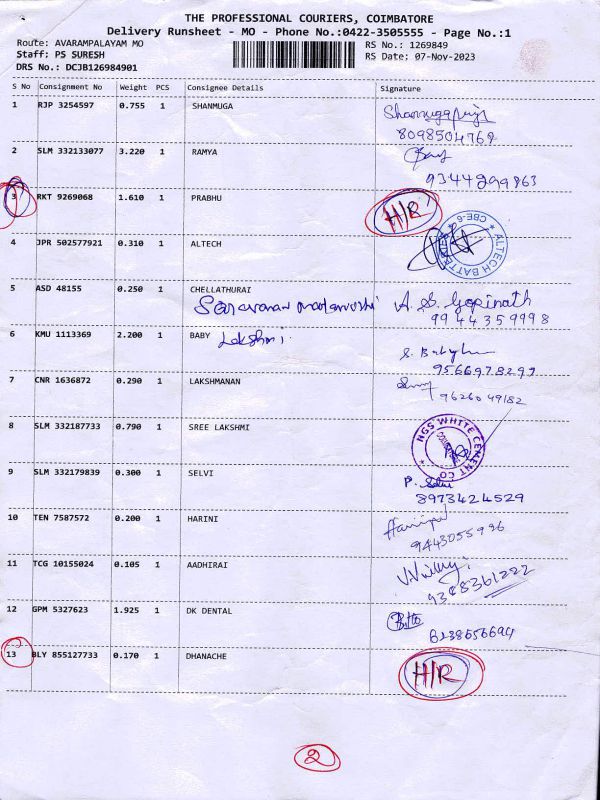 THE PROFESSIONAL COURIERS, COIMBATORE
Delivery Runsheet - MO - Phone No.:0422-3505555 - Page No.:1
Route: AVARAMPALAYAM MO
RS No.: 1269849
Staff: PS SURESH
RS Date: 07-Nov-2023
DRS No.: DCJB126984901
S No Consignment No Weight PCS Consignee Details Signature
1 RJP 3254597 0.755 1 SHANMUGA
8098504769
2 SLM 332133077 3.220 1 RAMYA
9344299863
3 RKT 9269068 1.610 1 PRABHU H/R
4 JPR 502577921 0.310 1 ALTECH
ALTECH BATTERIES CBE-6
5 ASD 48155 0.250 1 CHELLATHURAI
Saravanan A. S. Gopinath
9944359998
6 KMU 1113369 2.200 1 BABY Lakshmi
9566978299
7 CNR 1636872 0.290 1 LAKSHMANAN
9626049182
8 SLM 332187733 0.790 1 SREE LAKSHMI
NGS WHITE CEMENT CO
9 SLM 332179839 0.300 1 SELVI P. Selvi
8973424529
10 TEN 7587572 0.200 1 HARINI
9443055996
11 TCG 10155024 0.105 1 AADHIRAI
9368361222
12 GPM 5327623 1.925 1 DK DENTAL
13 BLY 855127733 0.170 1 DHANACHE H/R
2